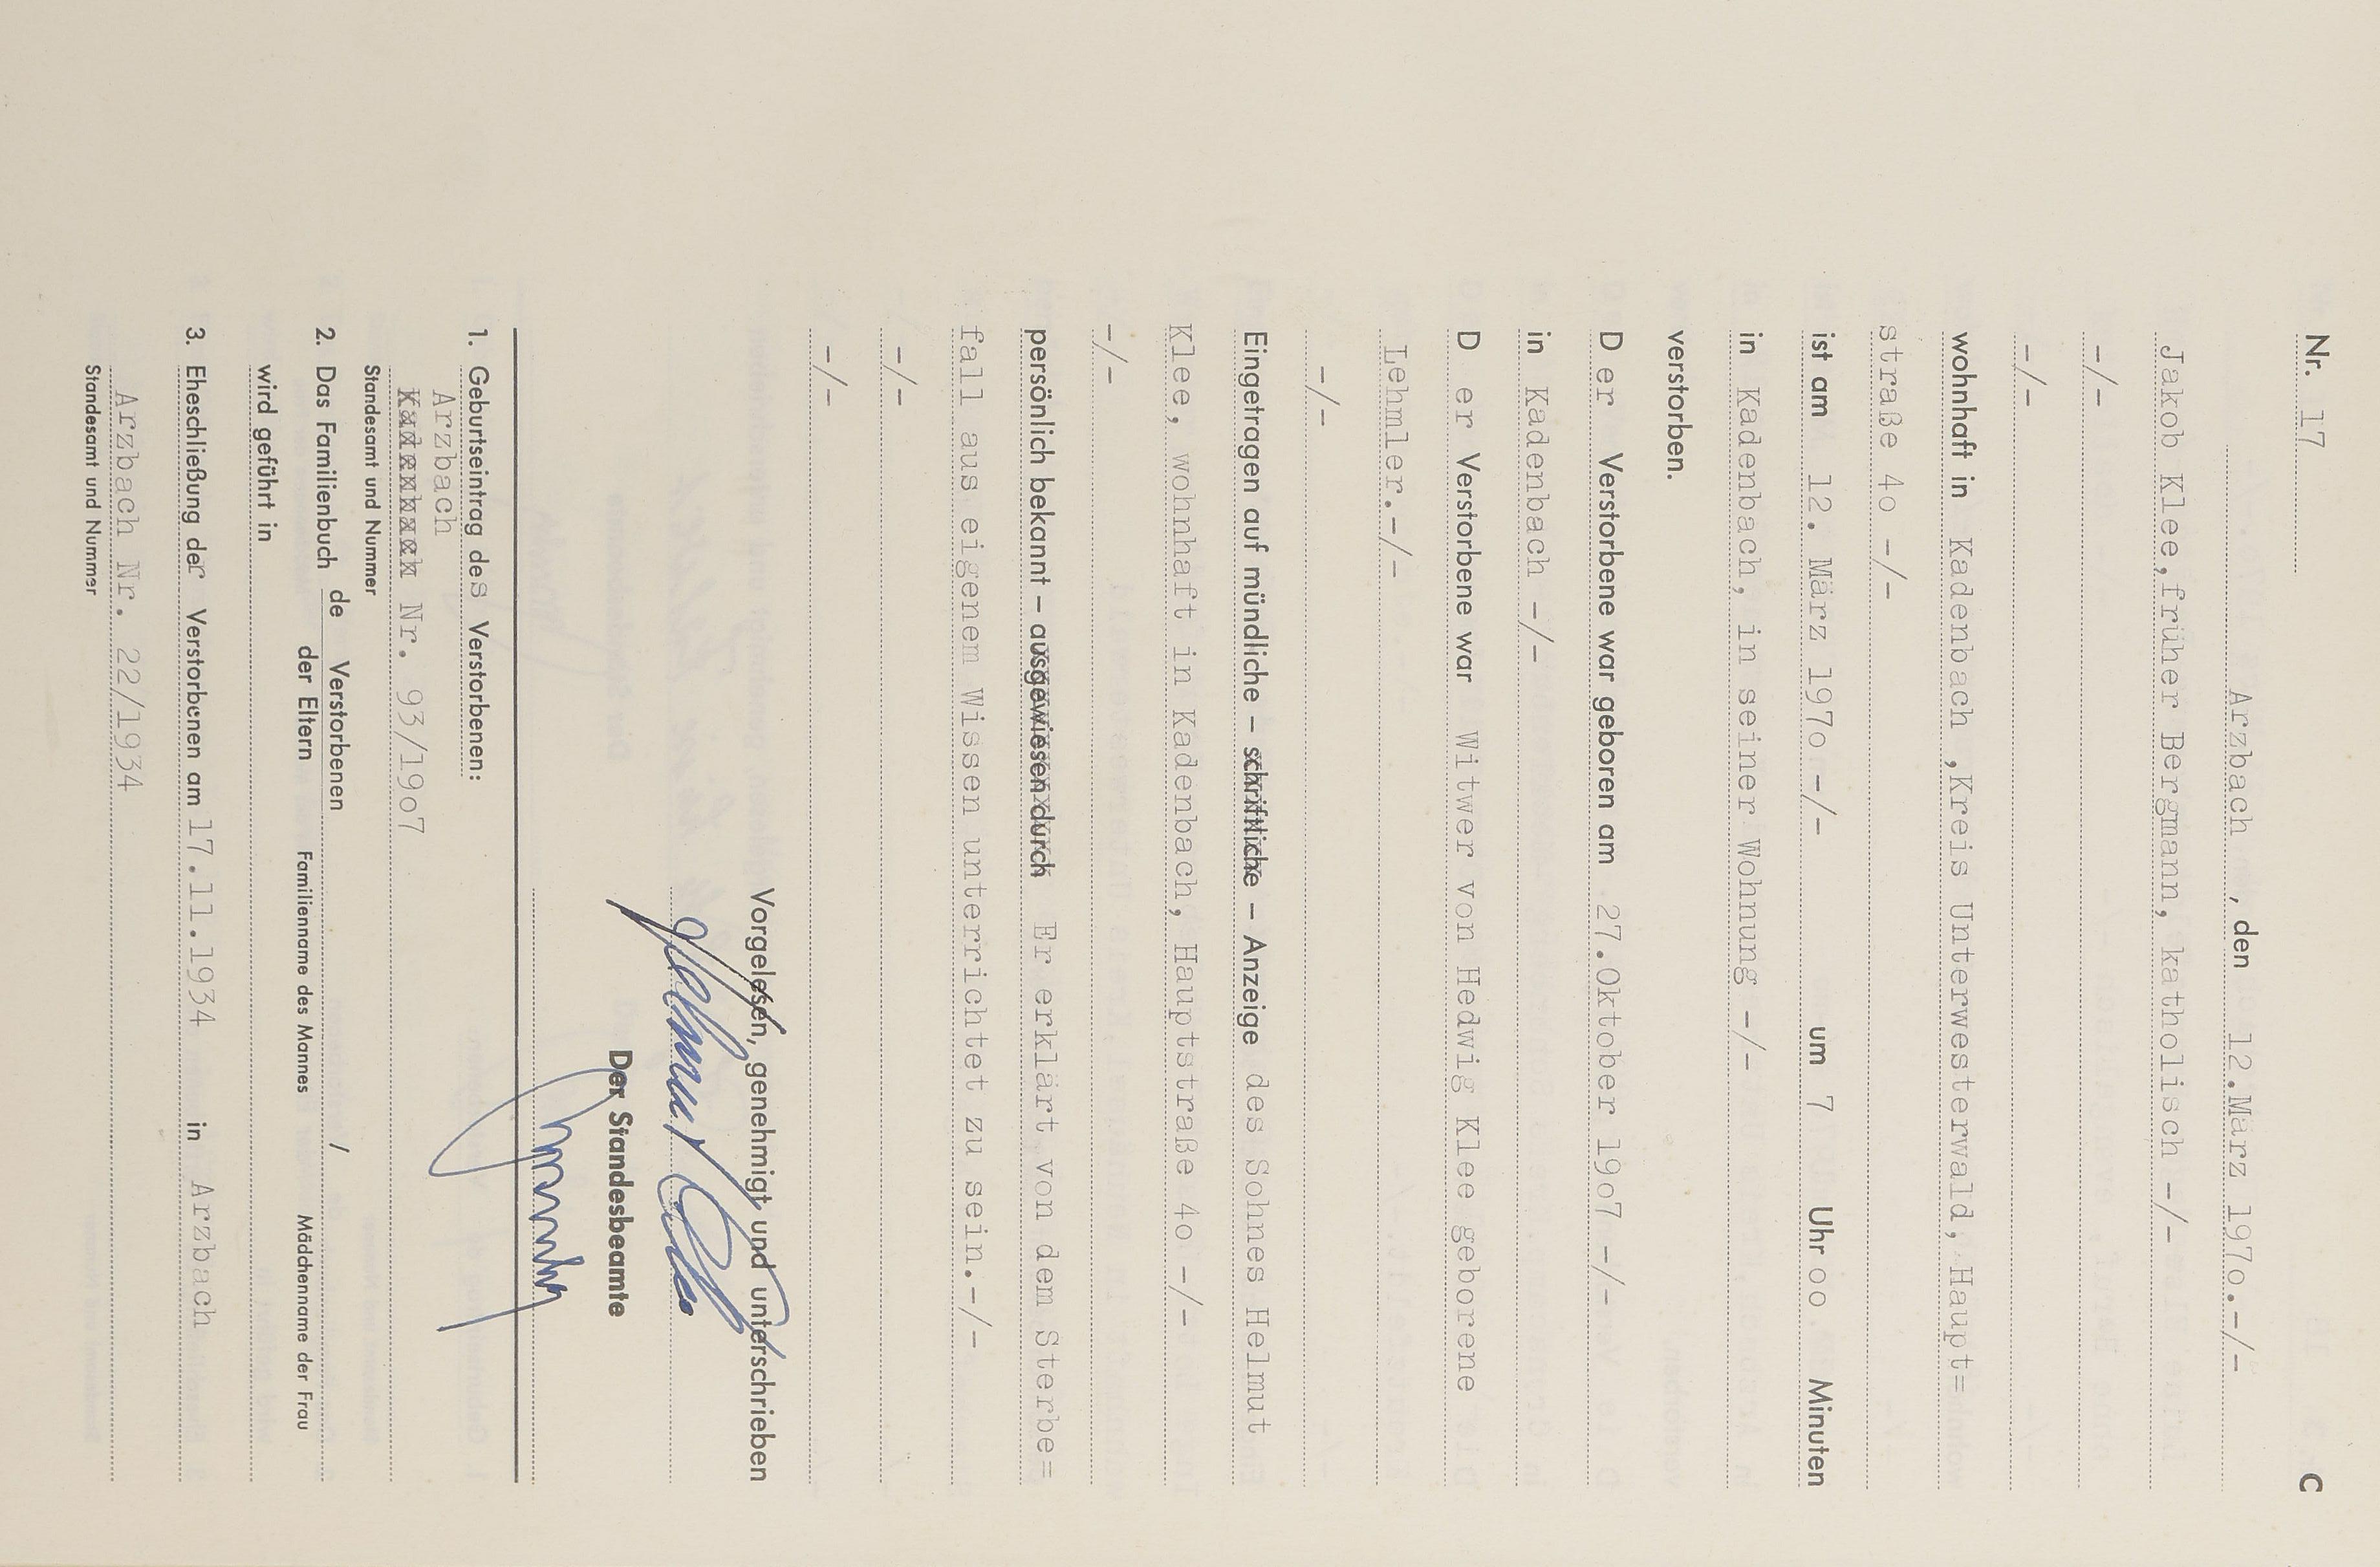 Nr. 17 C
Arzbach , den 12.März 197o.-/-
Jakob Klee,früher Bergmann, katholisch -/-
-/-
-/-
wohnhaft in Kadenbach ,Kreis Unterwesterwald, Haupt=
straße 4o -/-
ist am 12. März 197o -/- um 7 Uhr oo Minuten
in Kadenbach, in seiner Wohnung -/-
verstorben.
D er Verstorbene war geboren am 27.Oktober 19o7 -/-
in Kadenbach -/-
D er Verstorbene war Witwer von Hedwig Klee geborene
Lehmler.-/-
-/-
Eingetragen auf mündliche – schriftliche – Anzeige des Sohnes Helmut
Klee, wohnhaft in Kadenbach, Hauptstraße 4o -/-
-/-
persönlich bekannt – ausgewiesen durch Er erklärt von dem Sterbe=
fall aus eigenem Wissen unterrichtet zu sein.-/-
-/-
-/-
Vorgelesen, genehmigt und unterschrieben
Helmut Klee
Der Standesbeamte
1. Geburtseintrag des Verstorbenen:
Arzbach
Kadenbach Nr. 93/19o7
Standesamt und Nummer
2. Das Familienbuch de Verstorbenen /
der Eltern Familienname des Mannes Mädchenname der Frau
wird geführt in
3. Eheschließung der Verstorbenen am 17.11.1934 in Arzbach
Arzbach Nr. 22/1934
Standesamt und Nummer